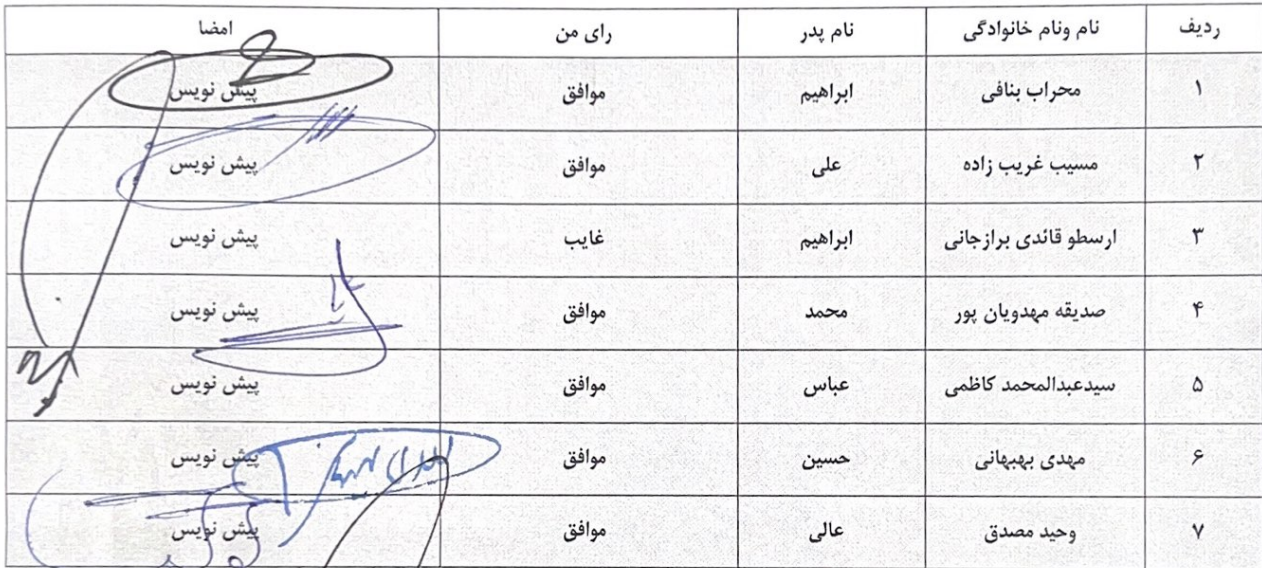 ردیف نام ونام خانوادگی نام پدر رای من امضا
۱ محراب بنافی ابراهیم موافق پیش نویس
۲ مسیب غریب زاده علی موافق پیش نویس
۳ ارسطو قائدی برازجانی ابراهیم غایب پیش نویس
۴ صدیقه مهدویان پور محمد موافق پیش نویس
۵ سیدعبدالمحمد کاظمی عباس موافق پیش نویس
۶ مهدی بهبهانی حسین موافق پیش نویس
۷ وحید مصدق عالی موافق پیش نویس